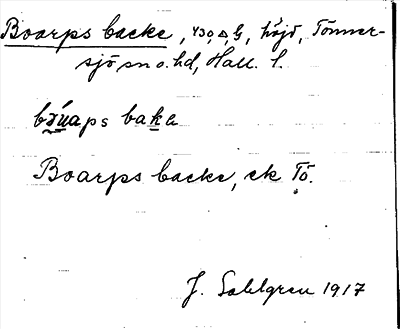 Boarps backe, 430, Δ, G, höjd, Tönner-
sjö sn o. hd, Hall. l.
br̥úaps baka
Boarps backe, ek Tö.
J. Sahlgren 1917